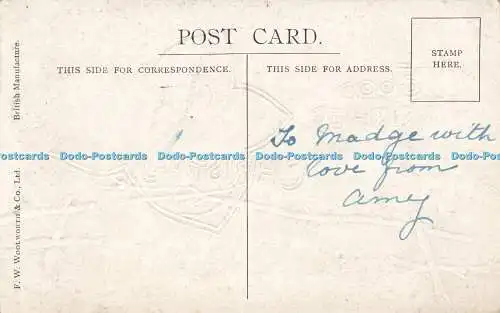 POST CARD.
THIS SIDE FOR CORRESPONDENCE.
THIS SIDE FOR ADDRESS.
STAMP
HERE.
British Manufacture.
F. W. Woolworth & Co., Ltd.
To Madge with
love from
Amey
Dodo-Postcards Dodo-Postcards Dodo-Postcards Dodo-Postcards Dodo-Postcards Dodo-Postcards